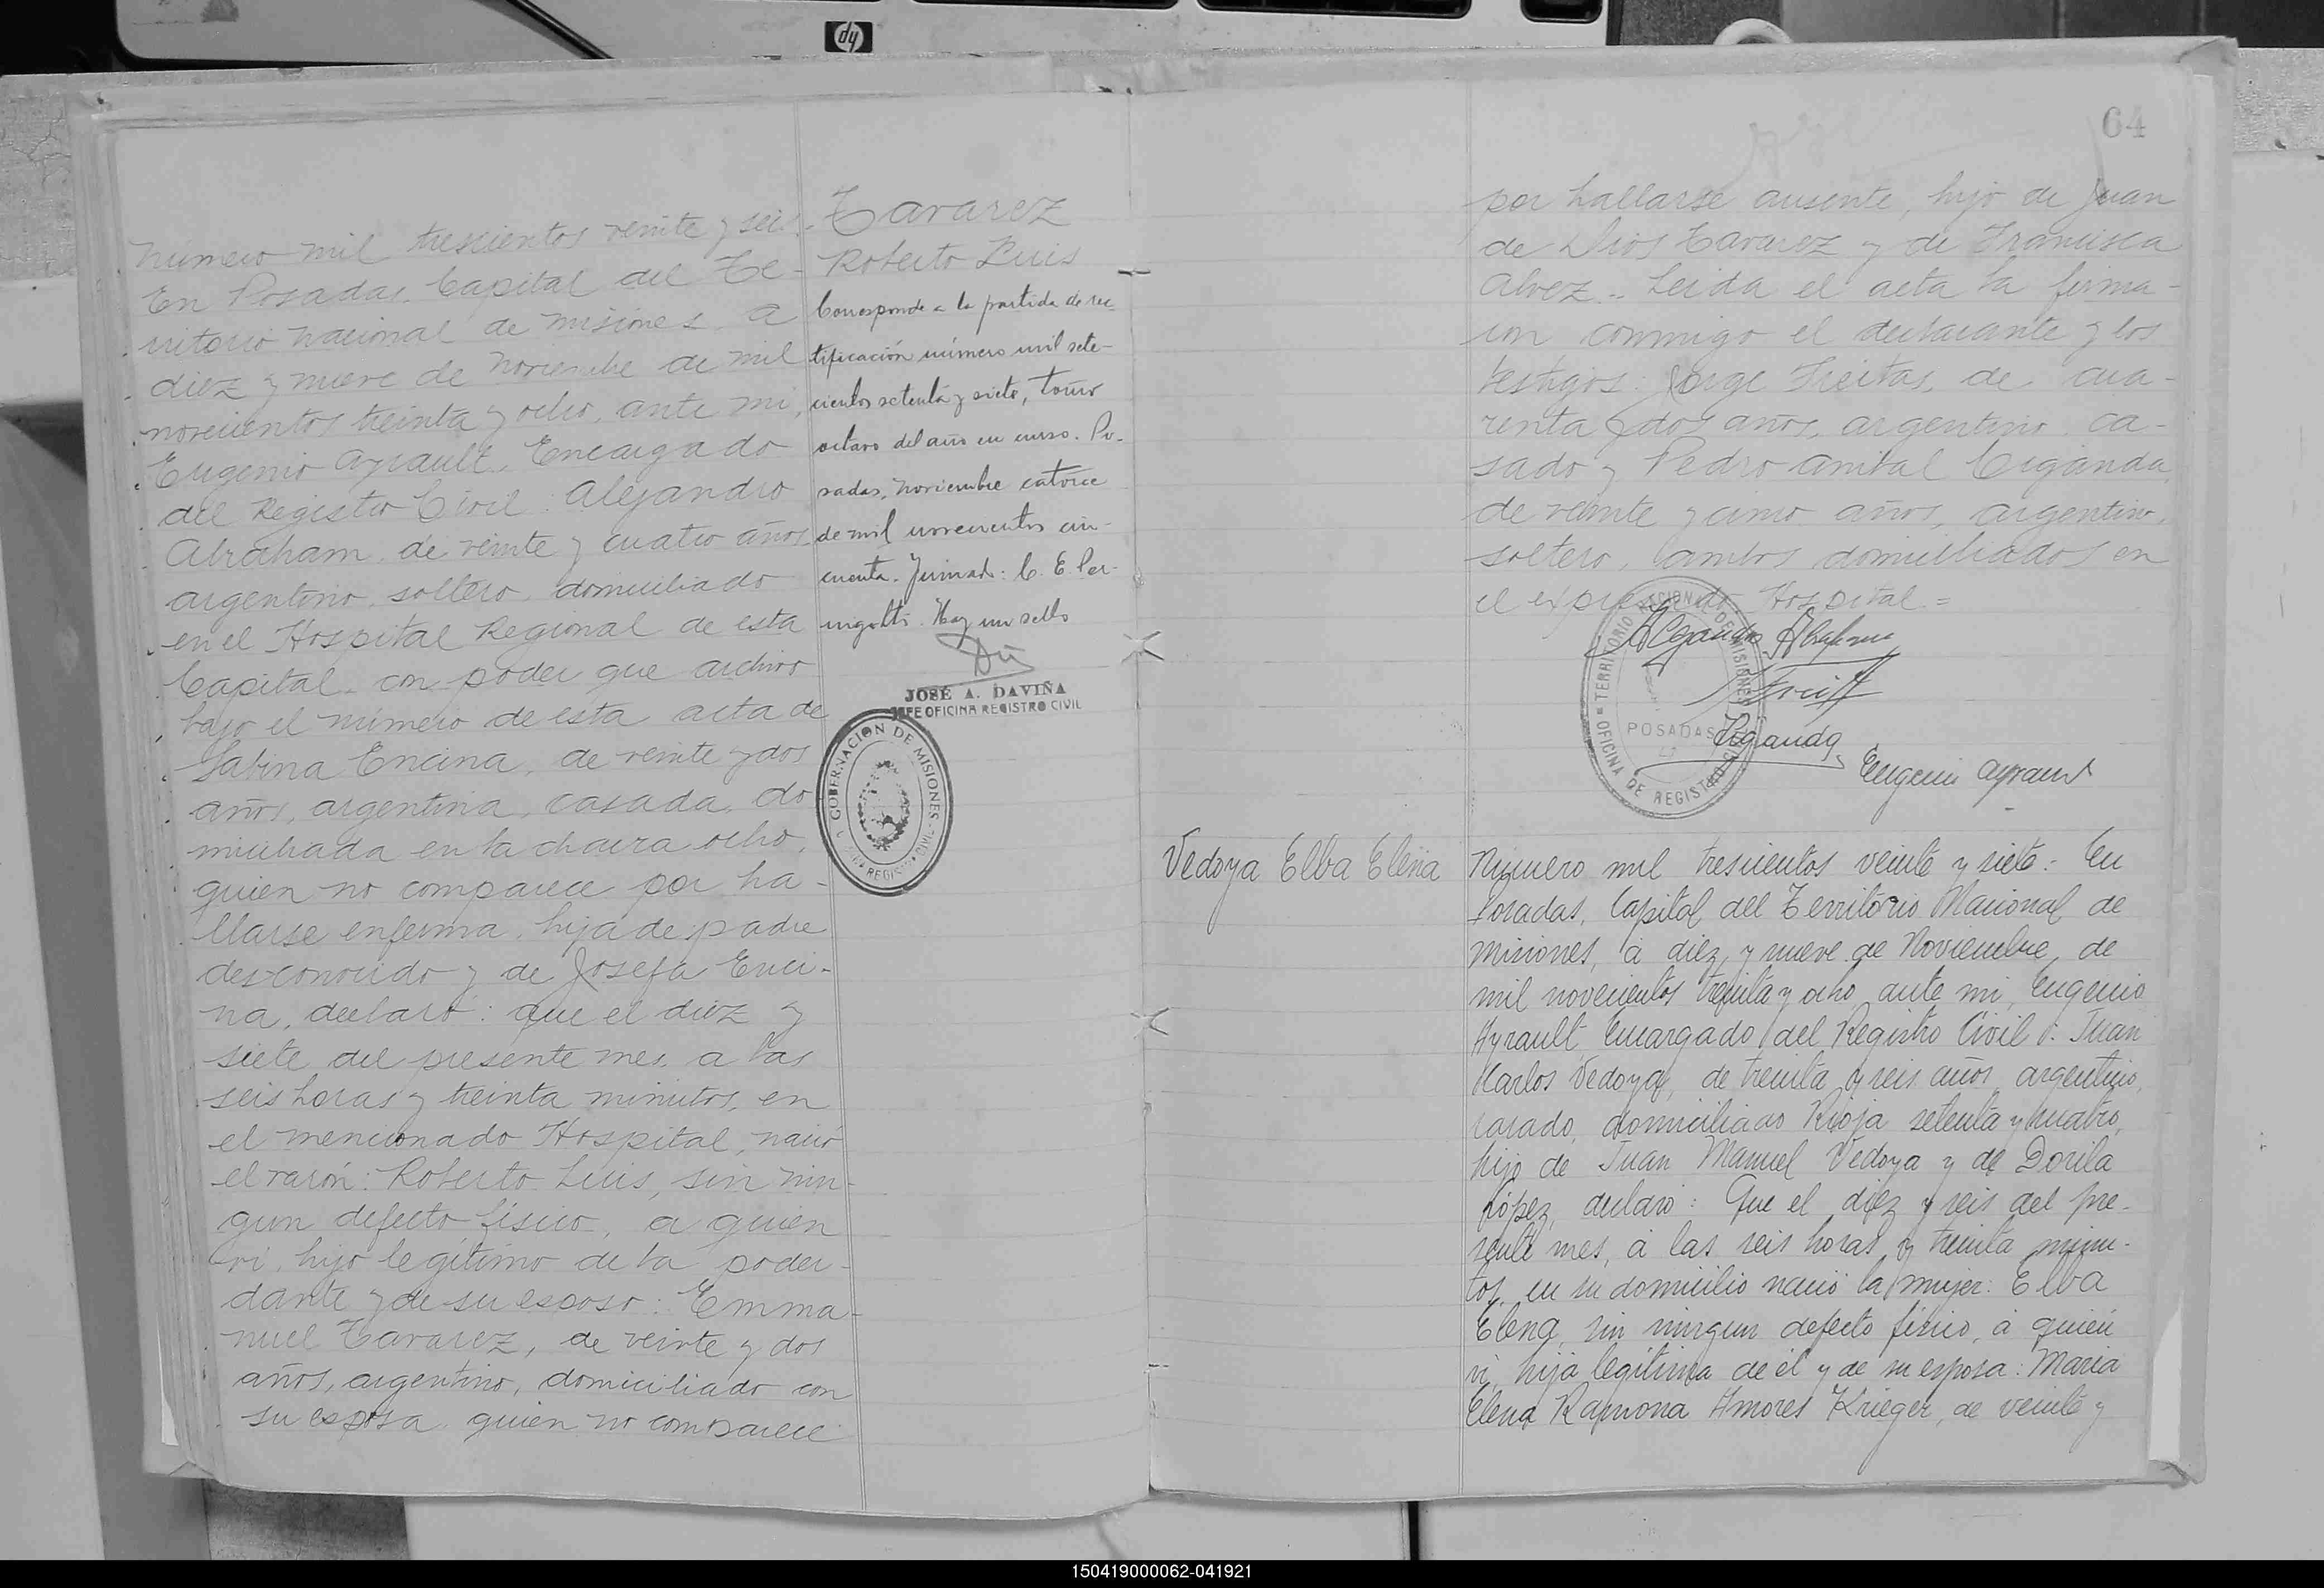 hp
Número mil trescientos veinte y seis.
En Posadas, Capital del Te-
rritorio Nacional de Misiones, a
diez y nueve de Noviembre de mil
novecientos treinta y ocho, ante mi,
Eugenio Ayrault, Encargado
del Registro Civil: Alejandro
Abraham, de veinte y cuatro años
argentino, soltero, domiciliado
en el Hospital Regional de esta
Capital, con poder que archivo
bajo el número de esta acta de
Sabina Encina, de veinte y dos
años, argentina, casada, do
miciliada en la chacra ocho,
quien no comparece por ha-
llarse enferma, hija de padre
desconocido y de Josefa Enci-
na, declaró: que el diez y
siete del presente mes, a las
seis horas y treinta minutos, en
el mencionado Hospital, nació
el varón: Roberto Luis, sin nin-
gun defecto físico, a quien
vi, hijo legítimo de la poder-
dante y de su esposo: Emma-
nuel Tavarez, de veinte y dos
años, argentino, domiciliado con
su esposa, quien no comparece
Tavarez
Roberto Luis
Corresponde a la partida de rec-
tificación número mil sete-
cientos setenta y siete, tomo
octavo del año en curso. Po-
sadas, noviembre catorce
de mil novecientos cin-
cuenta. Firmado: C. E. Per-
ingotti. Hay un sello
JOSÉ A. DAVIÑA
JEFE OFICINA REGISTRO CIVIL
GOBERNACION DE MISIONES
REGISTRO CIVIL
64
por hallarse ausente, hijo de Juan
de Dios Tavarez y de Francisca
Alvez.- Leida el acta la firma-
ron conmigo el declarante y los
testigos: Jorge Freitas, de cua-
renta y dos años, argentino, ca-
sado y Pedro Anibal Ciganda,
de veinte y cinco años, argentino,
soltero, ambos domiciliados en
el expresado Hospital =
Alejandro Abraham
Ciganda
Eugenio Ayrault
TERRITORIO NACIONAL DE MISIONES
POSADAS
OFICINA DE REGISTRO CIVIL
Vedoya Elba Elena
Número mil trescientos veinte y siete: En
Posadas, Capital del Territorio Nacional de
Misiones, á diez y nueve de Noviembre, de
mil novecientos treinta y ocho, ante mi, Eugenio
Ayrault, Encargado del Registro Civil: Juan
Carlos Vedoya, de treinta y seis años, argentino,
casado, domiciliado Rioja setenta y cuatro,
hijo de Juan Manuel Vedoya y de Dorila
López, declaró: Que el diez y seis del pre-
sente mes, á las seis horas y treinta minu-
tos, en su domicilio nació la mujer: Elba
Elena, sin ningun defecto físico, á quién
vi, hija legítima de él y de su esposa: Maria
Elena Ramona Amores Krieger, de veinte y
150419000062-041921